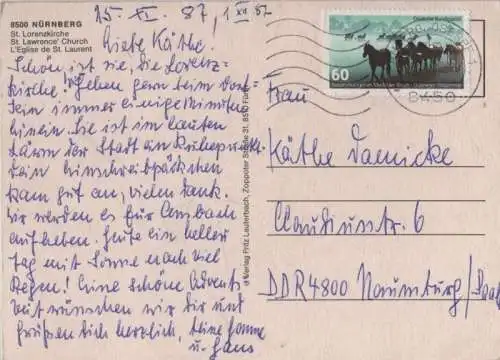 8500 NÜRNBERG
St. Lorenzkirche
St. Lawronce' Church
L'Eglise de St. Laurent
15. XI. 87, XII 87
Liebe Käthe.
Schön ist sie, die Lorenz-
kirche! Wir gehen gern beim Dort-
sein immer einige Minuten
hinein. Sie ist im lauten
Lärm der Stadt ein Ruhepunkt.
Dein päckchen
kam gut an, vielen Dank.
Wir werden es für
aufheben. Heute ein heller
Tag mit Sonne nach viel
Regen! Eine schöne Advents-
zeit wünschen wir Dir und
grüßen Dich herzlich, Deine
u. Hans
Verlag Fritz Lauterbach, Zoppoter Straße 31, 8510 Fürth
Deutsche Bundespost
60
8450
Frau
Käthe Daenicke
Claudiusstr. 6
DDR 4800 Naumburg/Saale